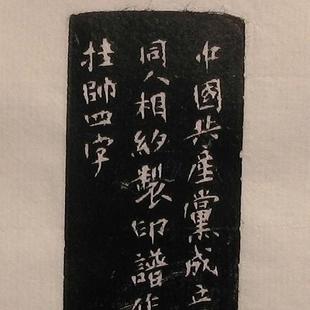 中國共產黨成立
同人相約製印譜作
挂帥四字